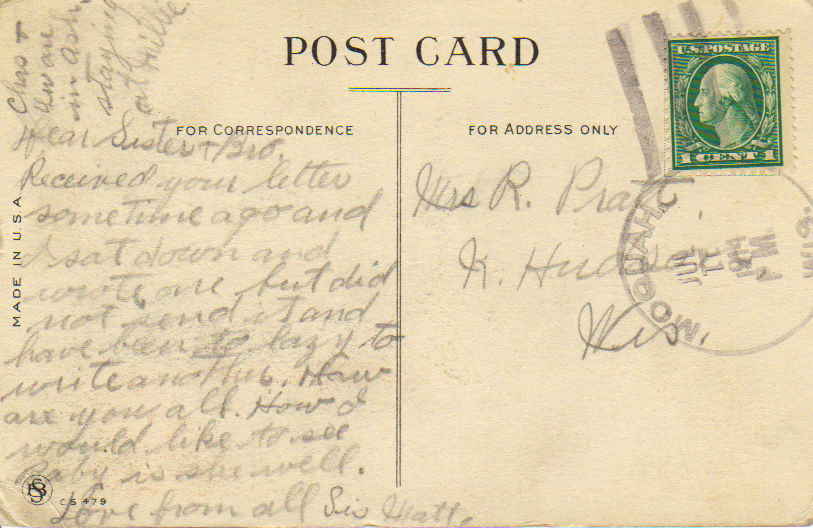 Chas +
in Ash.
staying
at Millie
POST CARD
FOR CORRESPONDENCE
FOR ADDRESS ONLY
U.S. POSTAGE
1 CENT 1
MOQUAH
WIS.
MADE IN U.S.A
Dear Sister + Bro.
Received your letter
sometime ago and
I sat down and
wrote one but did
not send it and
have been to lazy to
write another. How
are you all. How I
would like to see
Baby is she well.
Love from all Sis Matt.
Mrs R. Pratt
N. Hudson,
Wis.
CS 479